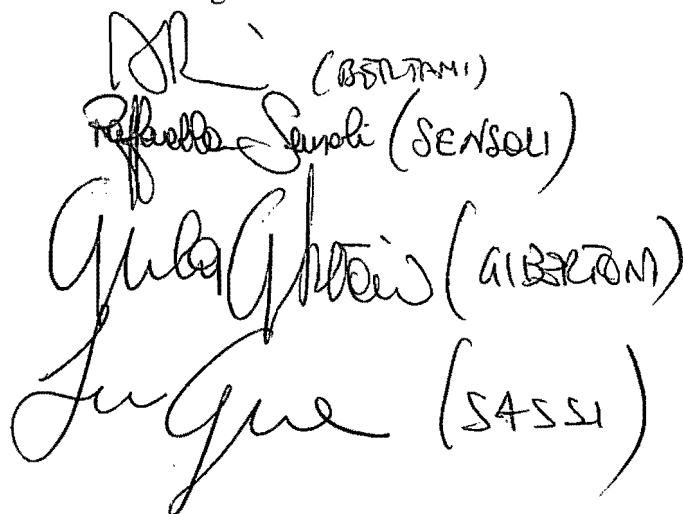 (BERTANI)
Raffaella Sensoli (SENSOLI)
Giulia Gibertoni (GIBERTONI)
(SASSI)